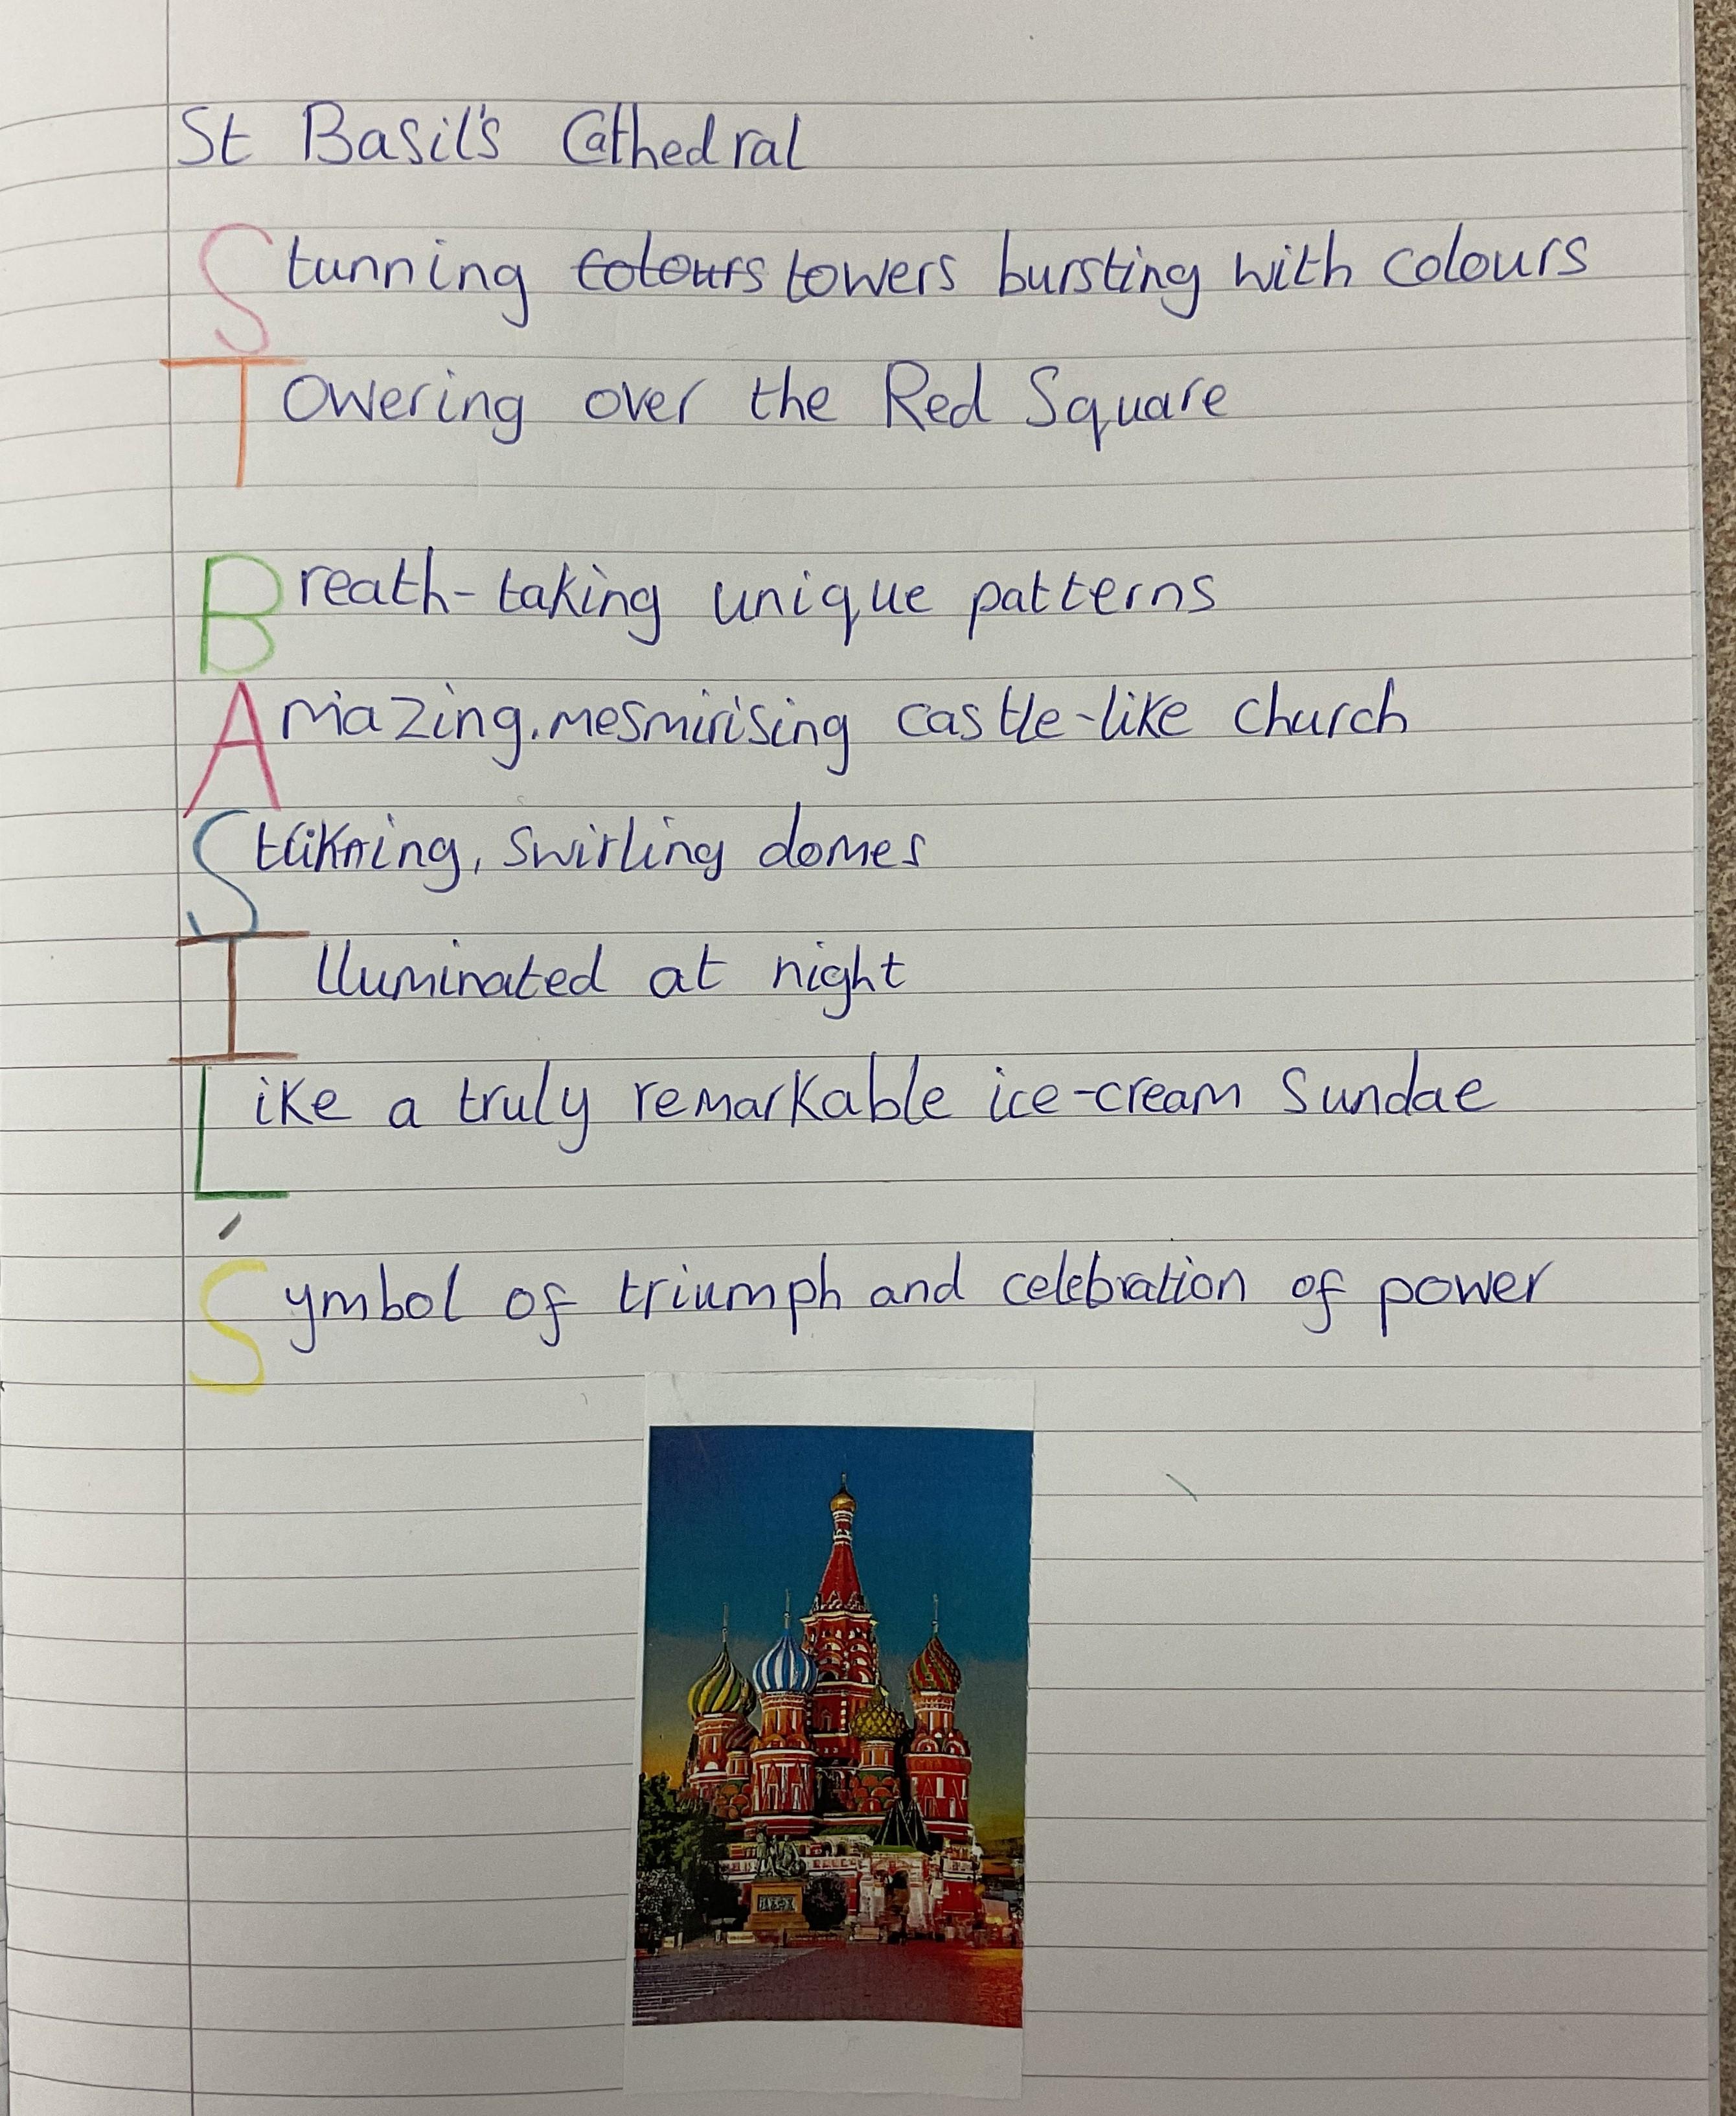 St Basil's Cathedral
Stunning colours towers bursting with colours
Towering over the Red Square
Breath-taking unique patterns
Amazing, mesmirising castle-like church
Striking, swirling domes
Illuminated at night
Like a truly remarkable ice-cream Sundae
'
Symbol of triumph and celebration of power